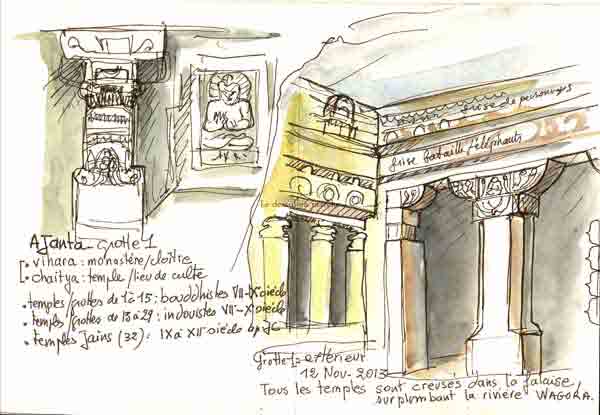 Ajanta - grotte 1
. vihara : monastère/cloître
. chaitya : temple/lieu de culte
. temples/grottes de 1 à 15 : bouddhistes VII-IXe siècle
. temples/grottes de 13 à 29 : indouistes VII-Xe siècle
. temples Jains (32) : IX à XII siècle
frise de personnages
frise bataille/éléphants
Grotte 1 = extérieur
12 Nov- 2013
Tous les temples sont creusés dans la falaise
surplombant la rivière WAGORA.